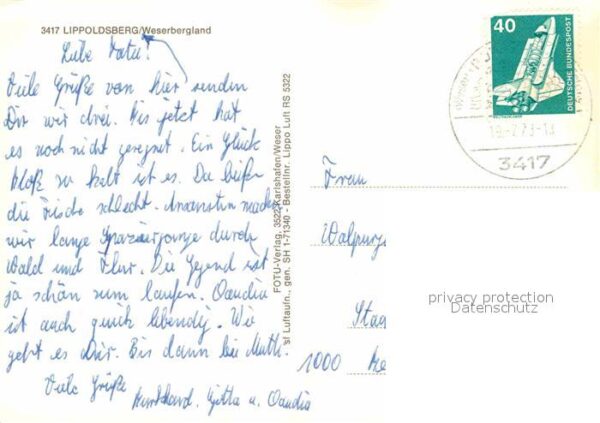 3417 LIPPOLDSBERG/Weserbergland
Liebe Mutti!
Viele Grüße von hier senden
Dir wir drei. Bis jetzt hat
es noch nicht geregnet. Ein Glück
bloß so kalt ist es. Da beißen
die Fische schlecht. Ansonsten machen
wir lange Spaziergänge durch
Wald und Flur. Die Gegend ist
ja schön zum laufen. Claudia
ist auch quick lebendig. Wie
geht es Dir. Bis dann bei Mutti.
Viele Grüße
Burkhard, Gitta u. Claudia
FOTU-Verlag, 3522 Karlshafen/Weser
st Luftaufn., gen. SH 1-71340 - Bestellnr. Lippo Luft RS 5322
40
DEUTSCHE BUNDESPOST
3417
Frau
Walpurg
Staa
1000
privacy protection
Datenschutz